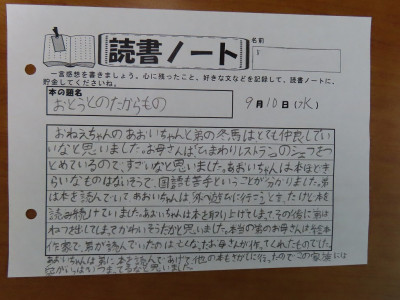 読書ノート
名前
一言感想を書きましょう。心に残ったこと、好きな文などを記録して、読書ノートに、
貯金してくださいね。
本の題名
おとうとのたからもの
9月10日(水)
おねえちゃんのあおいちゃんと弟の冬馬はとても仲良してい
いなと思いました。お母さんは、ひまわりレストランのシェフをつ
とめているので、すごいなと思いました。あおいちゃんは本ほどき
らいなものはないそうで、国語も苦手ということが分かりました。弟
は本を読んでいて、あおいちゃんは「外へ遊びに行こう」と言ったけど本を
読み続けていました。あおいちゃんは本を取り上げてしまって、その後に弟は
ねつを出してしまってかわいそうだなと思いました。本当の弟のお母さんは絵本
作家で、弟が読んでいたのは、亡くなったお母さんが作ってくれたものでした。
あおいちゃんは弟に本を読んであげて、他の本もさがしに行ったのでこの家族には